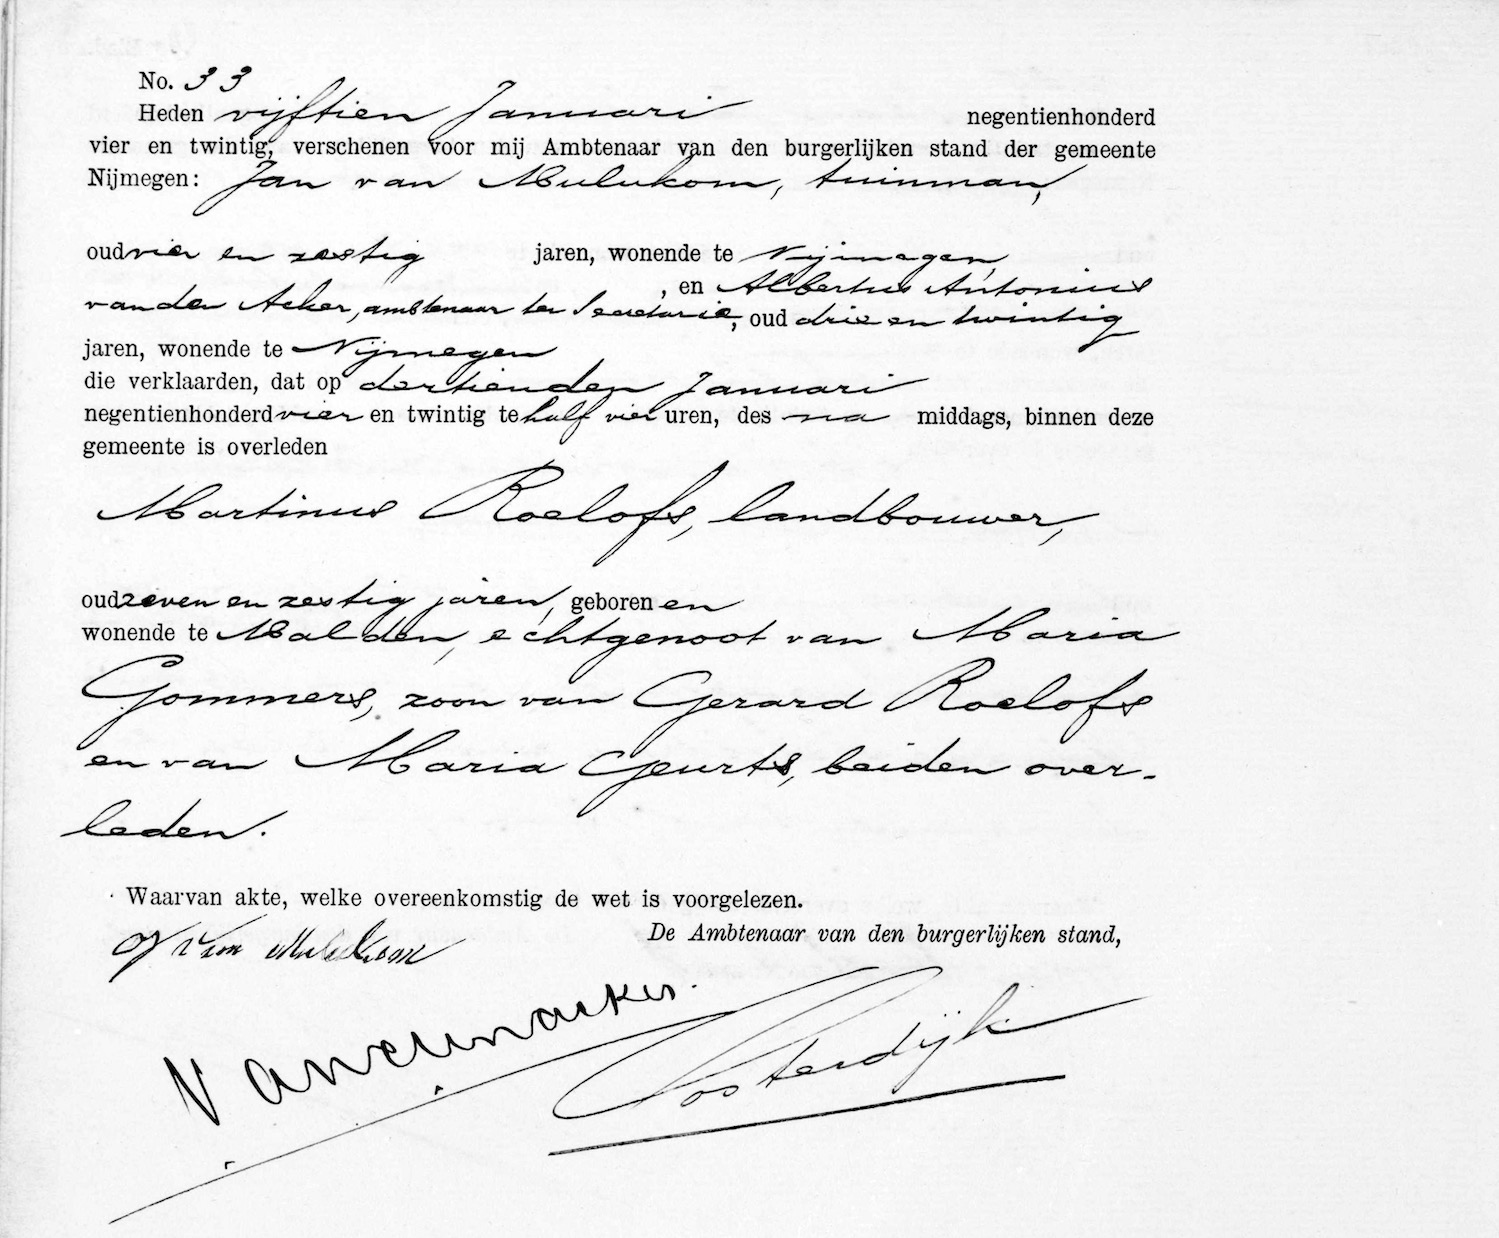 No. 33
Heden vijftien Januari negentienhonderd
vier en twintig, verschenen voor mij Ambtenaar van den burgerlijken stand der gemeente
Nijmegen: Jan van Mulukom, tuinman,
oud vier en zestig jaren, wonende te Nijmegen
, en Albertus Antonius
van den Acker, ambtenaar ter Secretarie, oud drie en twintig
jaren, wonende te Nijmegen
die verklaarden, dat op dertienden Januari
negentienhonderd vier en twintig te half vier uren, des na middags, binnen deze
gemeente is overleden
Martinus Roelofs, landbouwer,
oud zeven en zestig jaren, geboren en
wonende te Malden, echtgenoot van Maria
Gommers, zoon van Gerard Roelofs
en van Maria Geurts, beiden over-
leden.
Waarvan akte, welke overeenkomstig de wet is voorgelezen.
De Ambtenaar van den burgerlijken stand,
J van Mulukom
Vandenacker.
Oosterdijk